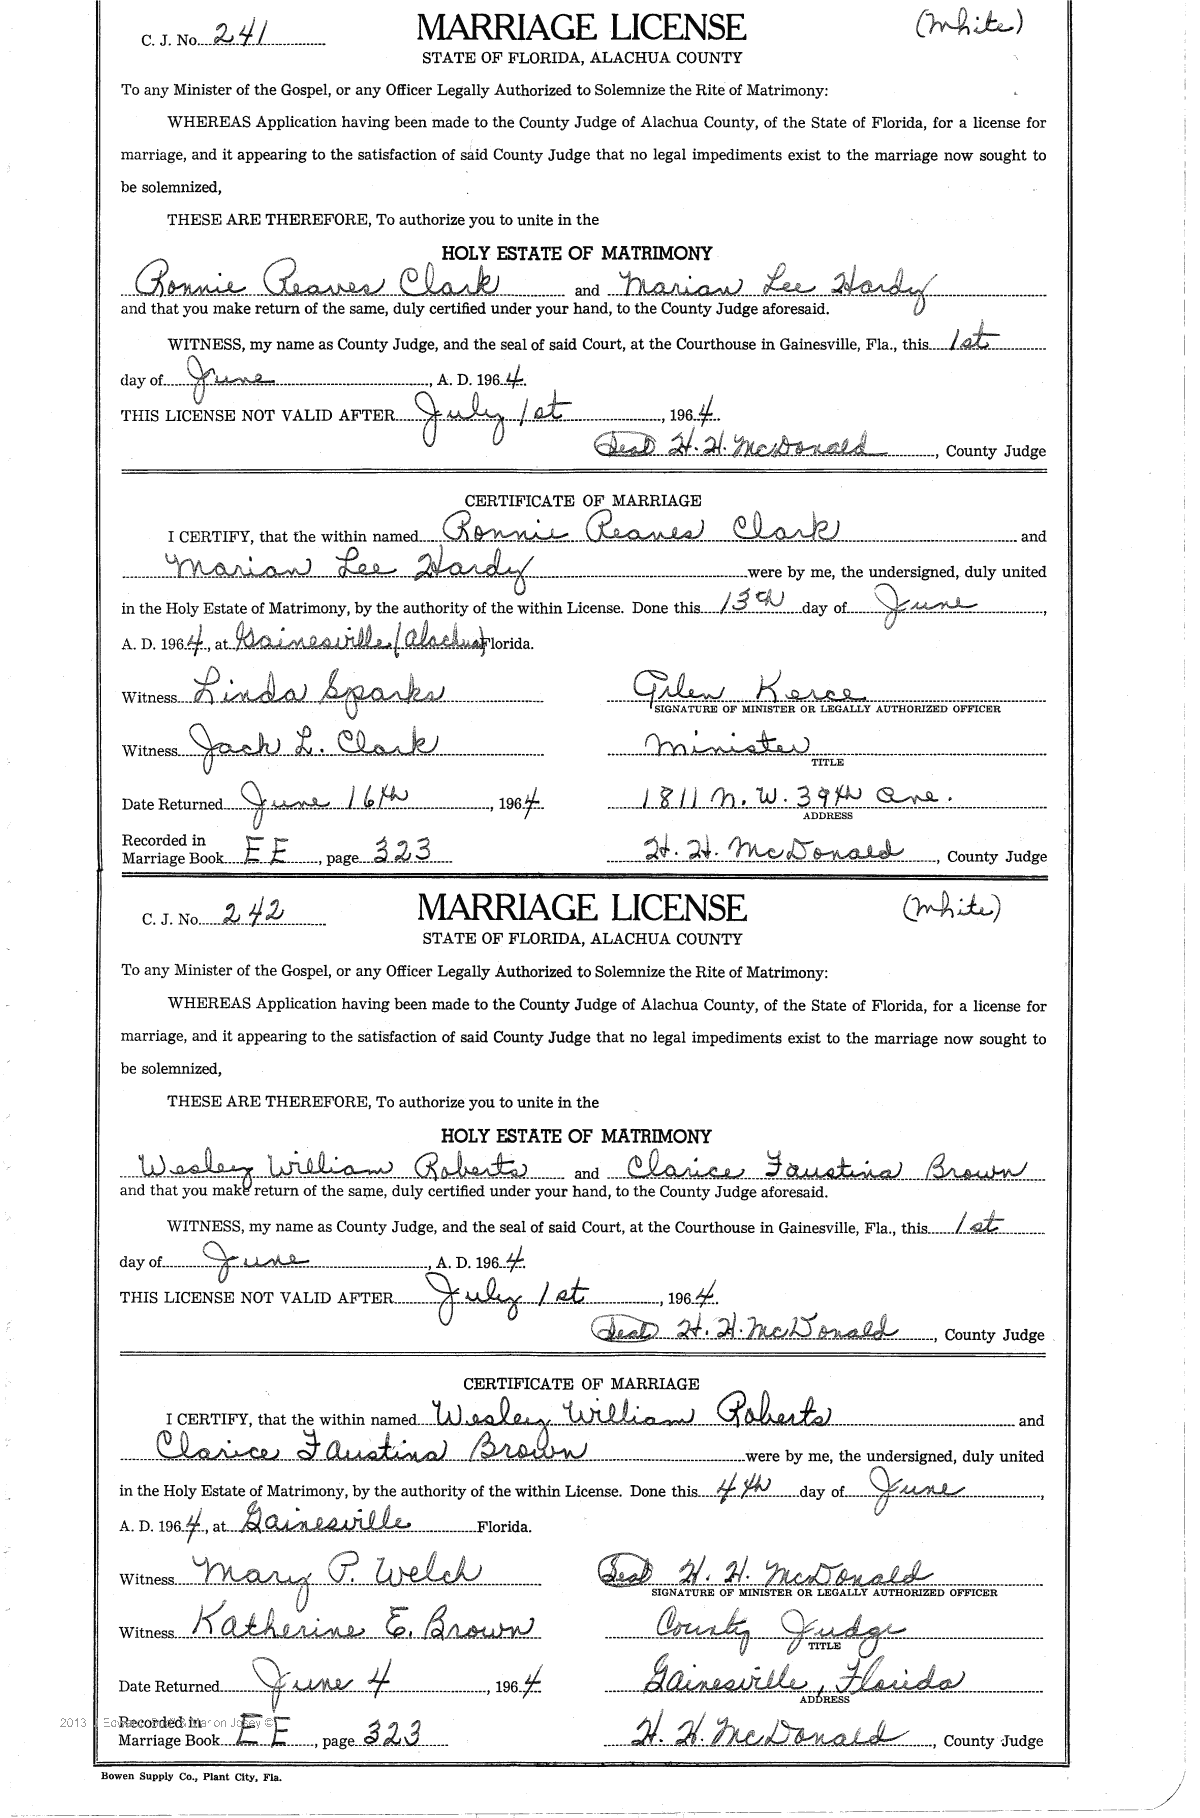 C. J. No. 241 MARRIAGE LICENSE (White)
STATE OF FLORIDA, ALACHUA COUNTY
To any Minister of the Gospel, or any Officer Legally Authorized to Solemnize the Rite of Matrimony:
WHEREAS Application having been made to the County Judge of Alachua County, of the State of Florida, for a license for
marriage, and it appearing to the satisfaction of said County Judge that no legal impediments exist to the marriage now sought to
be solemnized,
THESE ARE THEREFORE, To authorize you to unite in the
HOLY ESTATE OF MATRIMONY
Ronnie Reaves Clark and Marian Lee Hardy
and that you make return of the same, duly certified under your hand, to the County Judge aforesaid.
WITNESS, my name as County Judge, and the seal of said Court, at the Courthouse in Gainesville, Fla., this 1st
day of June, A. D. 1964.
THIS LICENSE NOT VALID AFTER July 1st, 1964.
(Seal) H. H. McDonald, County Judge
CERTIFICATE OF MARRIAGE
I CERTIFY, that the within named Ronnie Reaves Clark and
Marian Lee Hardy were by me, the undersigned, duly united
in the Holy Estate of Matrimony, by the authority of the within License. Done this 13th day of June,
A. D. 1964, at Gainesville (Alachua) Florida.
Witness Linda Sparks Glen Kerce
SIGNATURE OF MINISTER OR LEGALLY AUTHORIZED OFFICER
Witness Jack L. Clark Minister
TITLE
Date Returned June 16th, 1964. 1811 N. W. 39th Ave.
ADDRESS
Recorded in
Marriage Book EE, page 323 H. H. McDonald, County Judge
C. J. No. 242 MARRIAGE LICENSE (White)
STATE OF FLORIDA, ALACHUA COUNTY
To any Minister of the Gospel, or any Officer Legally Authorized to Solemnize the Rite of Matrimony:
WHEREAS Application having been made to the County Judge of Alachua County, of the State of Florida, for a license for
marriage, and it appearing to the satisfaction of said County Judge that no legal impediments exist to the marriage now sought to
be solemnized,
THESE ARE THEREFORE, To authorize you to unite in the
HOLY ESTATE OF MATRIMONY
Wesley William Roberts and Clarice Faustina Brown
and that you make return of the same, duly certified under your hand, to the County Judge aforesaid.
WITNESS, my name as County Judge, and the seal of said Court, at the Courthouse in Gainesville, Fla., this 1st
day of June, A. D. 1964.
THIS LICENSE NOT VALID AFTER July 1st, 1964.
(Seal) H. H. McDonald, County Judge
CERTIFICATE OF MARRIAGE
I CERTIFY, that the within named Wesley William Roberts and
Clarice Faustina Brown were by me, the undersigned, duly united
in the Holy Estate of Matrimony, by the authority of the within License. Done this 4th day of June,
A. D. 1964, at Gainesville Florida.
Witness Mary P. Welch (Seal) H. H. McDonald
SIGNATURE OF MINISTER OR LEGALLY AUTHORIZED OFFICER
Witness Katherine E. Brown County Judge
TITLE
Date Returned June 4, 1964. Gainesville, Florida
ADDRESS
2013
Recorded in
Marriage Book EE, page 323 H. H. McDonald, County Judge
Bowen Supply Co., Plant City, Fla.